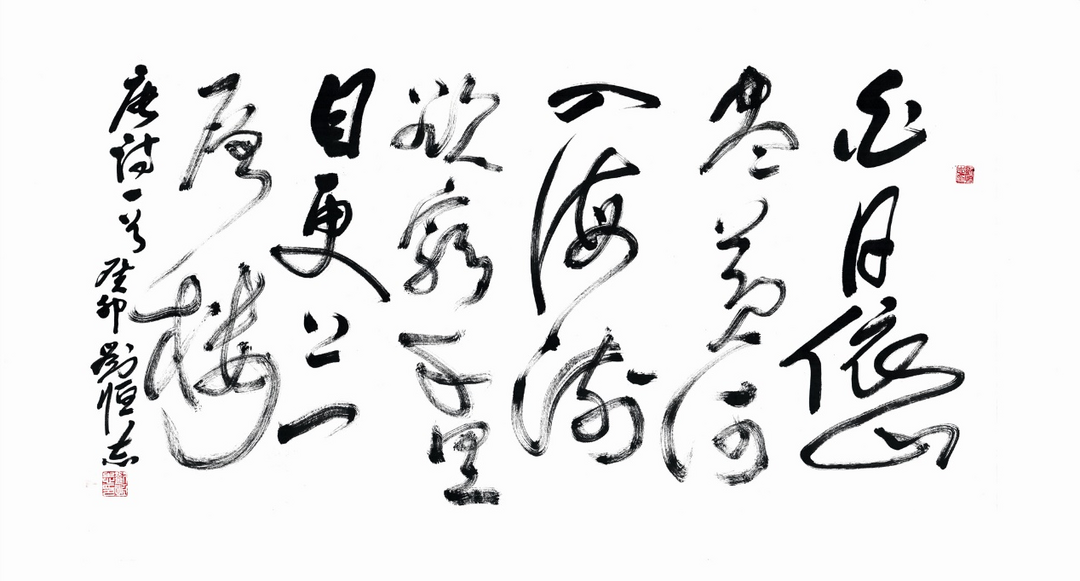 白日依山
尽黄河
入海流
欲穷千里
目更上一
层楼
唐诗一首
癸卯刘恒志